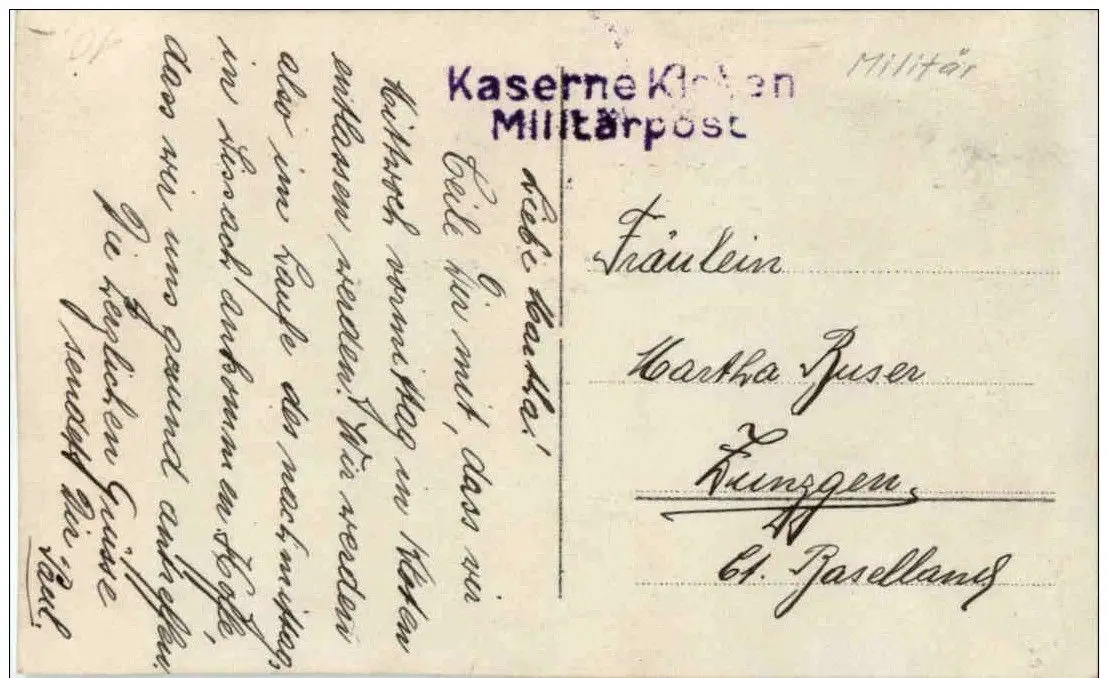 Kaserne Kloten
Militärpost
Militär
Liebe Martha!
Teile Dir mit, dass wir
Mittwoch vormittag in Kloten
entlassen werden. Wir werden
also im Laufe des nachmittag,
in Lissach ankommen. Hoffe,
dass wir uns gesund antreffen.
Die herzlichen Grüsse
sendet Dir, Paul.
Fräulein
Martha Buser
Zunzgen.
Ct. Baselland